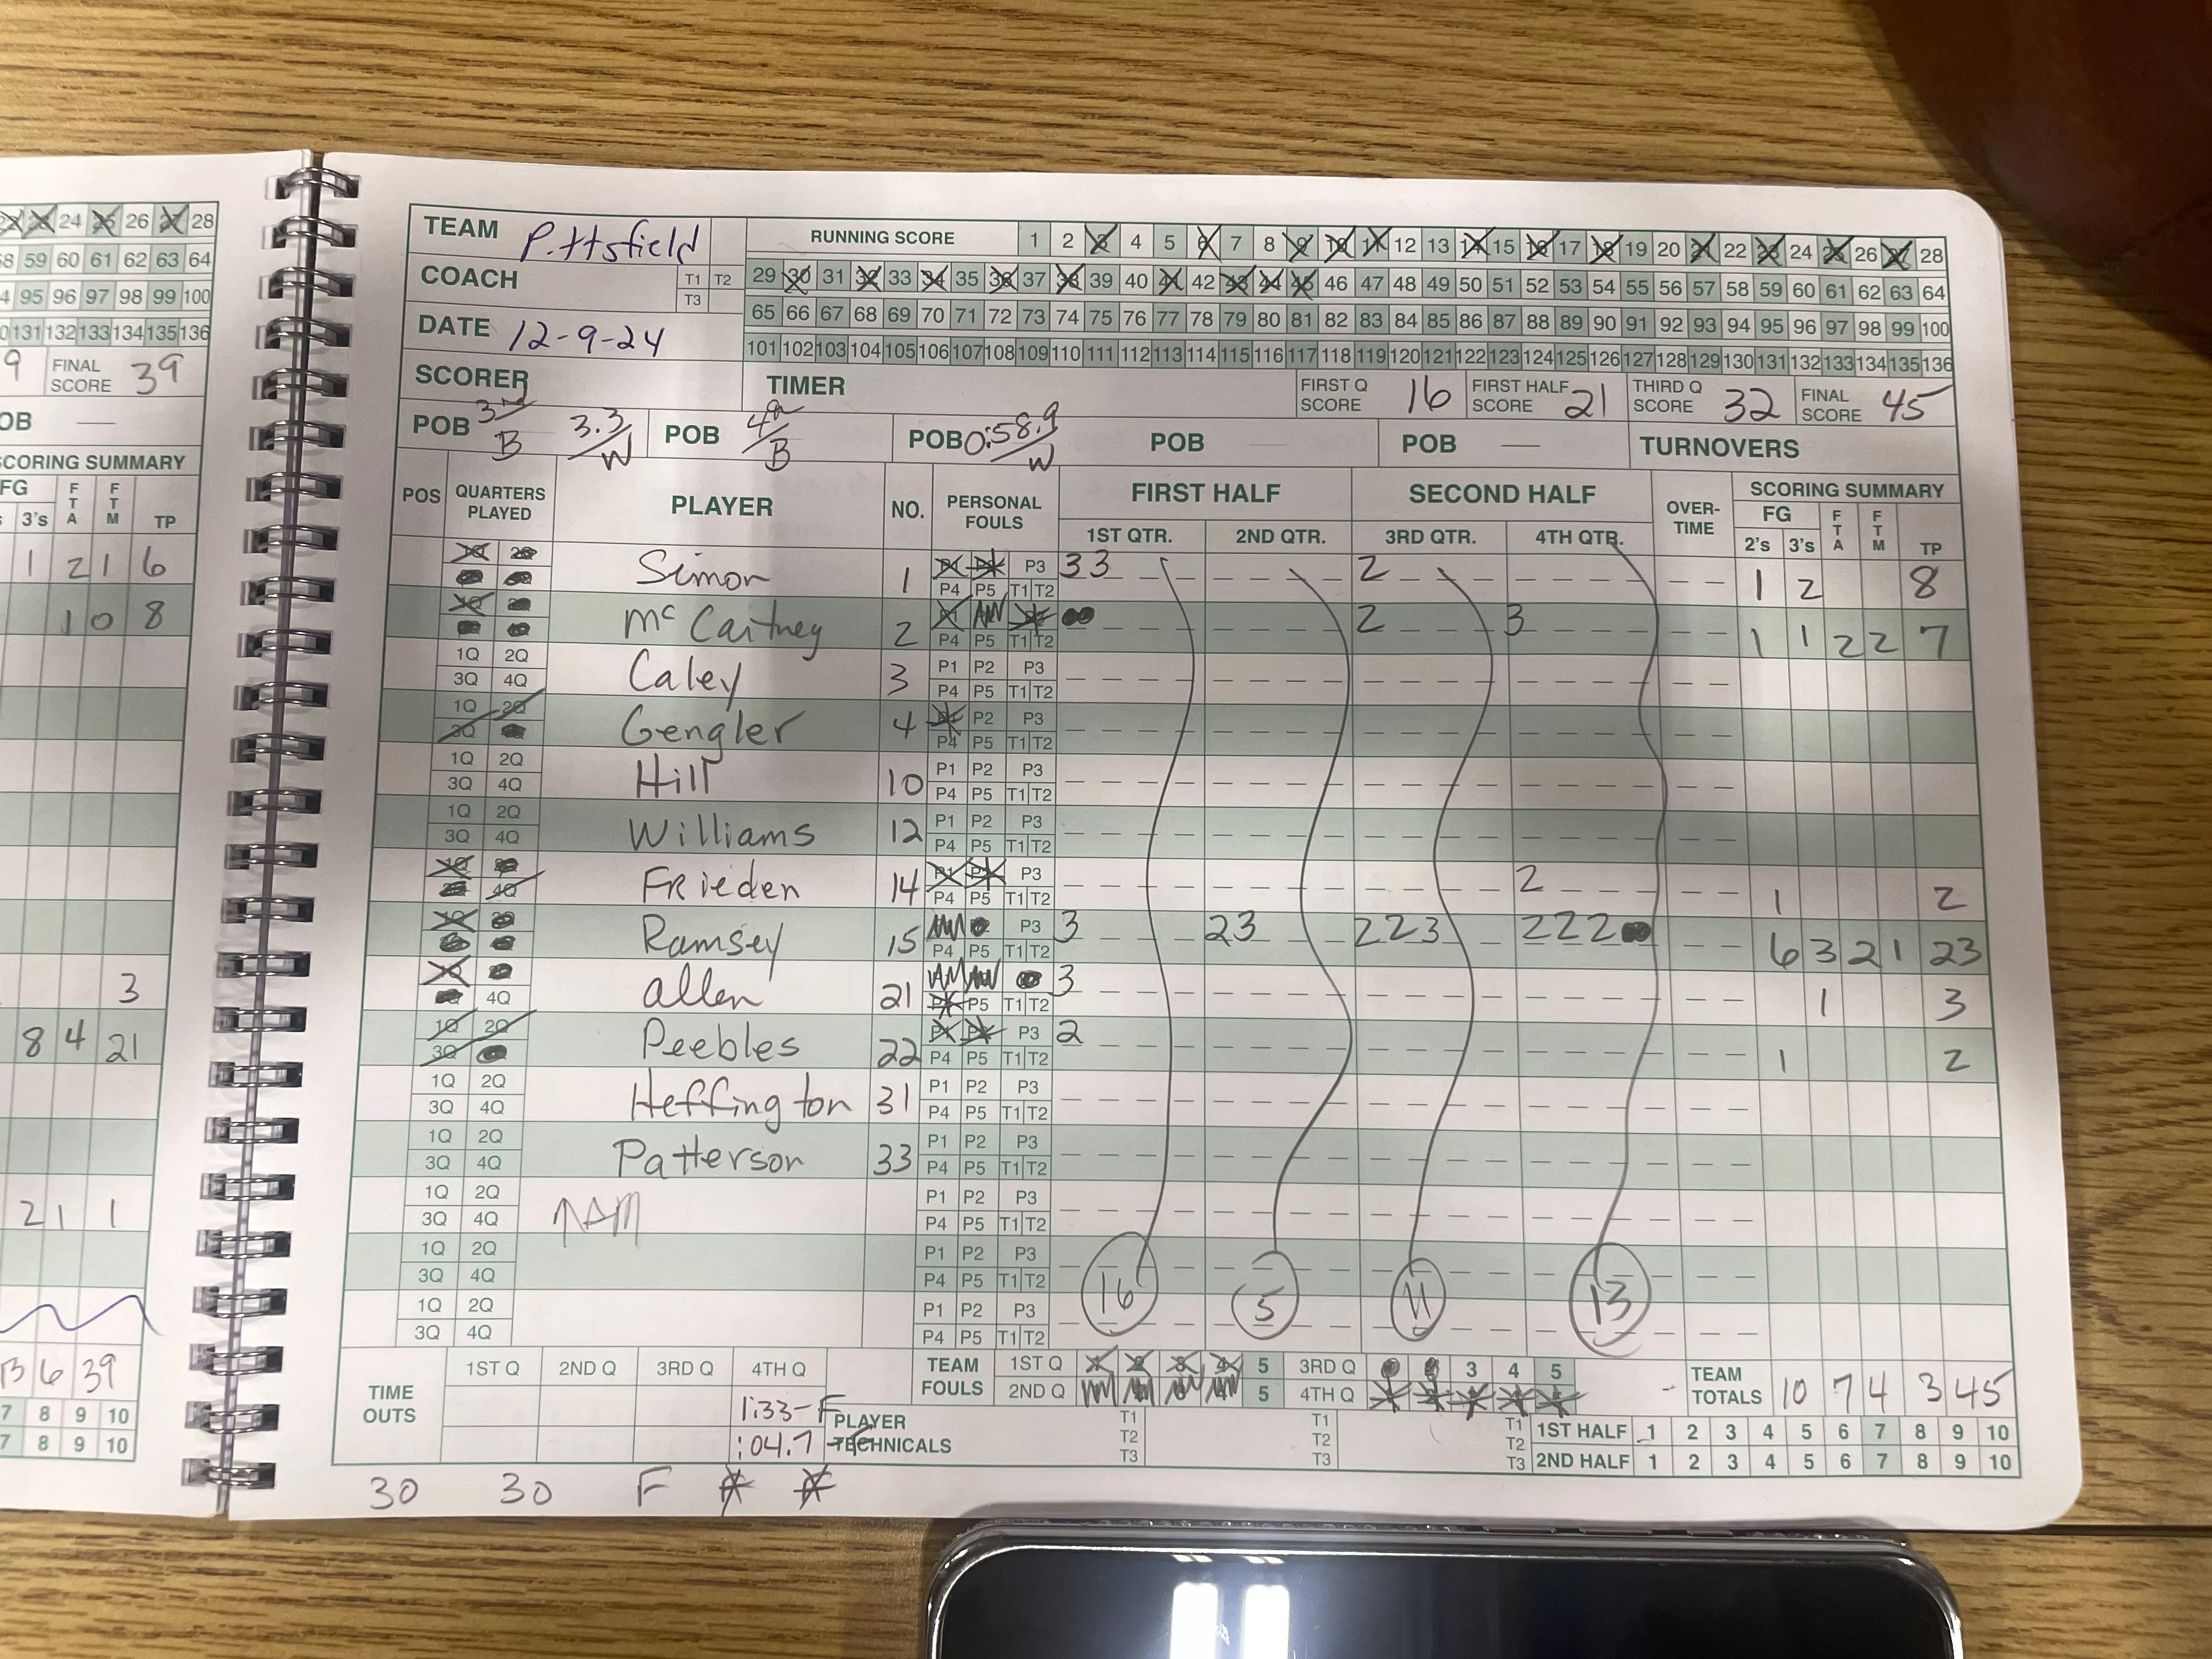 TEAM Pittsfield
RUNNING SCORE 1 2 3 4 5 6 7 8 9 10 11 12 13 14 15 16 17 18 19 20 21 22 23 24 25 26 27 28
COACH T1 T2 T3
29 30 31 32 33 34 35 36 37 38 39 40 41 42 43 44 45 46 47 48 49 50 51 52 53 54 55 56 57 58 59 60 61 62 63 64
65 66 67 68 69 70 71 72 73 74 75 76 77 78 79 80 81 82 83 84 85 86 87 88 89 90 91 92 93 94 95 96 97 98 99 100
DATE 12-9-24
101 102 103 104 105 106 107 108 109 110 111 112 113 114 115 116 117 118 119 120 121 122 123 124 125 126 127 128 129 130 131 132 133 134 135 136
SCORER TIMER FIRST Q SCORE 16 FIRST HALF SCORE 21 THIRD Q SCORE 32 FINAL SCORE 45
POB 3rd/B 3.3/W POB 4th/B POB 0:58.9/W POB POB — TURNOVERS
POS QUARTERS PLAYED PLAYER NO. PERSONAL FOULS FIRST HALF SECOND HALF OVER-TIME SCORING SUMMARY
1ST QTR. 2ND QTR. 3RD QTR. 4TH QTR. FG 2's 3's FTA FTM TP
Simon 1 P3 P4 P5 T1 T2 33 2 1 2 8
McCartney 2 P4 P5 T1 T2 2 3 1 1 2 2 7
1Q 2Q 3Q 4Q Caley 3 P1 P2 P3 P4 P5 T1 T2
1Q 2Q 3Q Gengler 4 P2 P3 P4 P5 T1 T2
1Q 2Q 3Q 4Q Hill 10 P1 P2 P3 P4 P5 T1 T2
1Q 2Q 3Q 4Q Williams 12 P1 P2 P3 P4 P5 T1 T2
1Q 4Q Frieden 14 P1 P3 P4 P5 T1 T2 2 1 2
Ramsey 15 P3 P4 P5 T1 T2 3 23 223 222 6 3 2 1 23
4Q Allen 21 P5 T1 T2 3 1 3
1Q 2Q 3Q Peebles 22 P3 P4 P5 T1 T2 2 1 2
1Q 2Q 3Q 4Q Heffington 31 P1 P2 P3 P4 P5 T1 T2
1Q 2Q 3Q 4Q Patterson 33 P1 P2 P3 P4 P5 T1 T2
1Q 2Q 3Q 4Q P1 P2 P3 P4 P5 T1 T2
1Q 2Q 3Q 4Q P1 P2 P3 P4 P5 T1 T2
1Q 2Q 3Q 4Q P1 P2 P3 P4 P5 T1 T2
16 5 11 13
TIME OUTS 1ST Q 2ND Q 3RD Q 4TH Q
1:33-F
:04.7
TEAM FOULS 1ST Q 1 2 3 4 5 3RD Q 3 4 5
2ND Q 5 4TH Q
TEAM TOTALS 10 7 4 3 45
PLAYER TECHNICALS T1 T2 T3 T1 T2 T3 T1 T2 T3
1ST HALF 1 2 3 4 5 6 7 8 9 10
2ND HALF 1 2 3 4 5 6 7 8 9 10
30 30 F
24 25 26 27 28
59 60 61 62 63 64
95 96 97 98 99 100
131 132 133 134 135 136
9 FINAL SCORE 39
OB —
SCORING SUMMARY
FG FTA FTM
3's TP
1 2 1 6
1 0 8
3
8 4 21
2 1 1
13 6 39
7 8 9 10
7 8 9 10